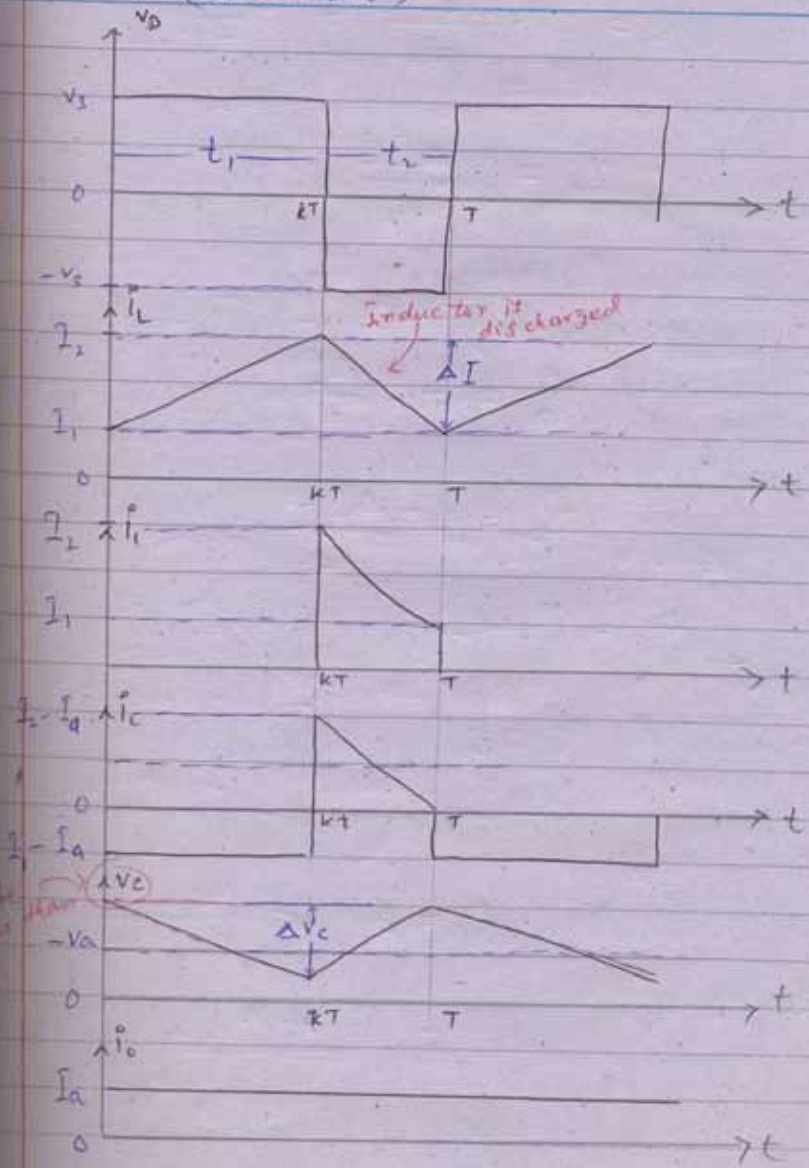 v_D
v_s
t_1 t_2
0 kT T t
-v_s
i_L
Inductor is
discharged
I_2
ΔI
I_1
0 kT T t
I_2 i_1
I_1
kT T t
I_2-I_a i_c
0 kt T t
I_1-I_a
v_c
-Va Δv_c
0 kT T t
i_o
I_a
0 t